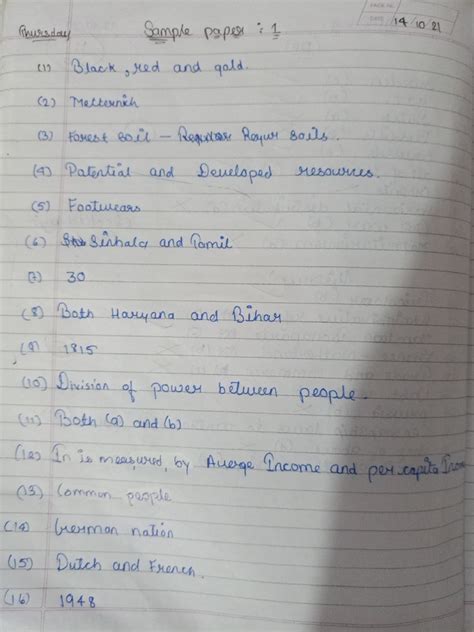 PAGE NO.
DATE 14/10/21
Thursday Sample paper : 1
(1) Black, red and gold.
(2) Metternich
(3) Forest soil – Regular Regur soils.
(4) Potential and Developed resources.
(5) Footwears
(6) Sinhala and Tamil
(7) 30
(8) Both Haryana and Bihar
(9) 1815
(10) Division of power between people.
(11) Both (a) and (b)
(12) In is measured, by Averge Income and per capita Income
(13) Common people
(14) German nation
(15) Dutch and French.
(16) 1948